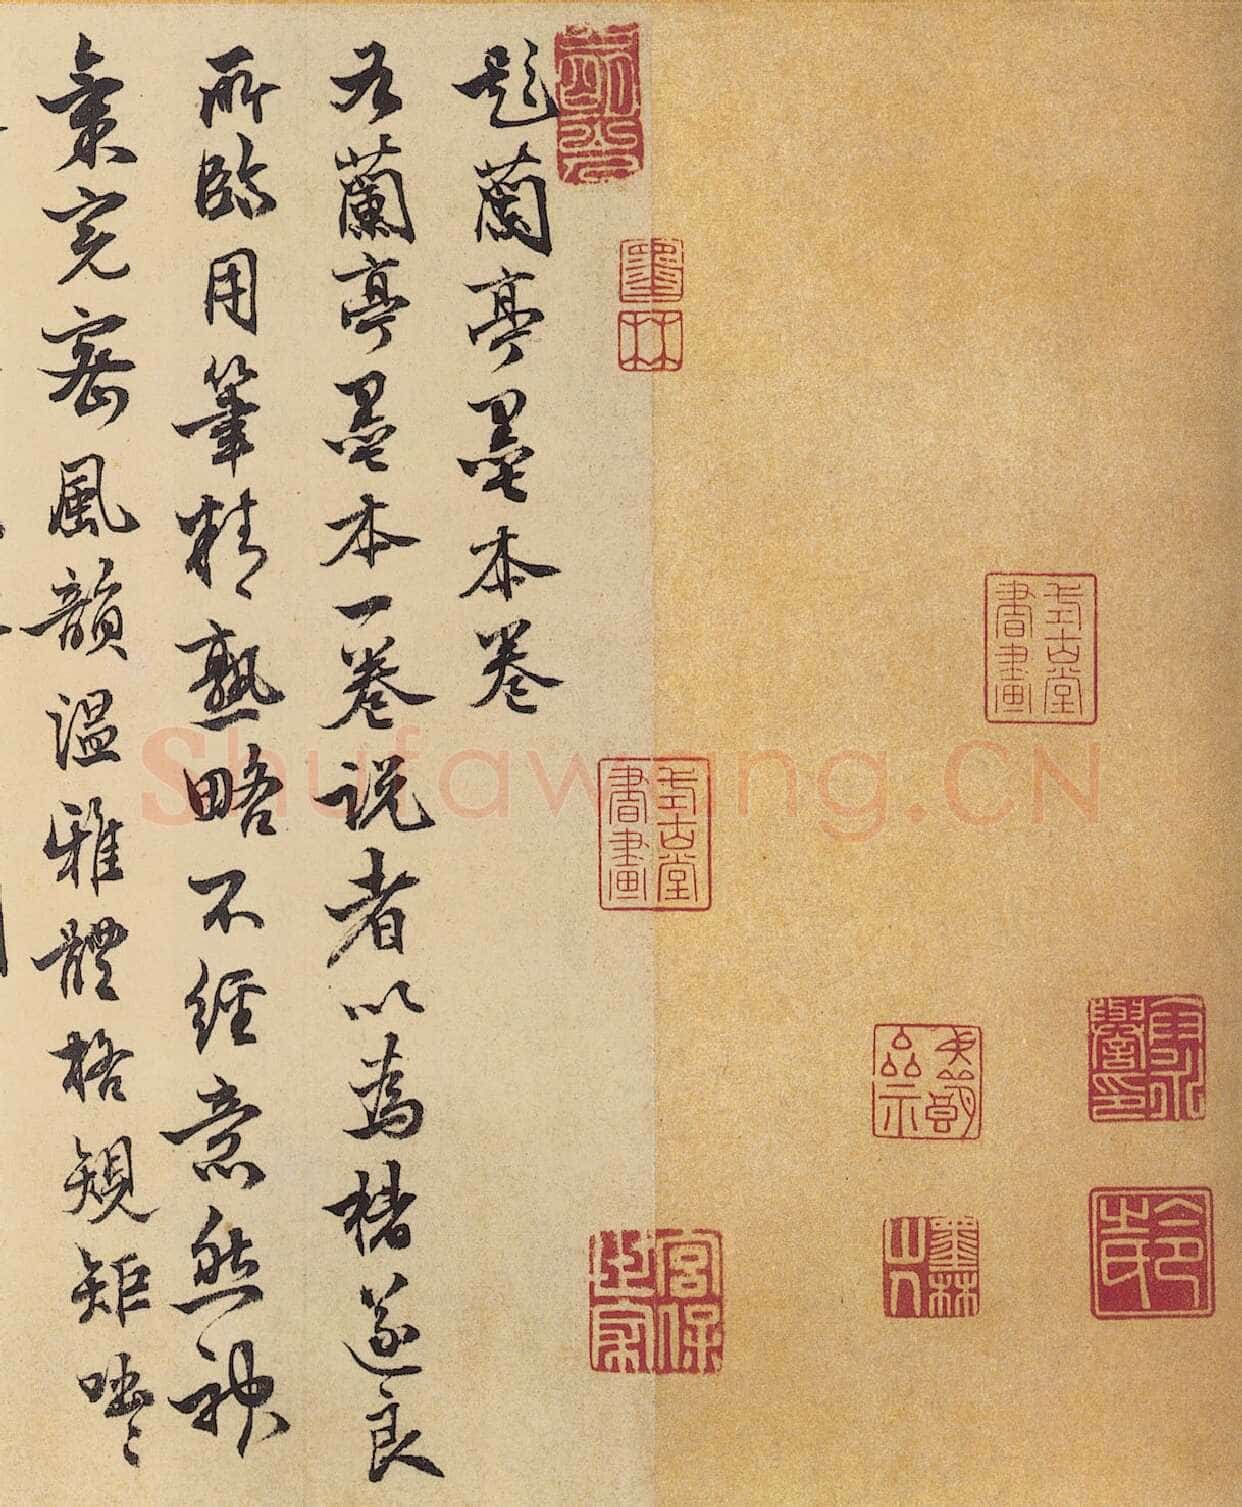 題蘭亭墨本卷
右蘭亭墨本一卷説者以為楮遂良
所臨用筆精熟略不經意然神
氣完密風韻溫雅體格規矩咄〻
墨林
式古堂書畫
式古堂書畫
宮保世家
墨林山人
Shufawang.CN